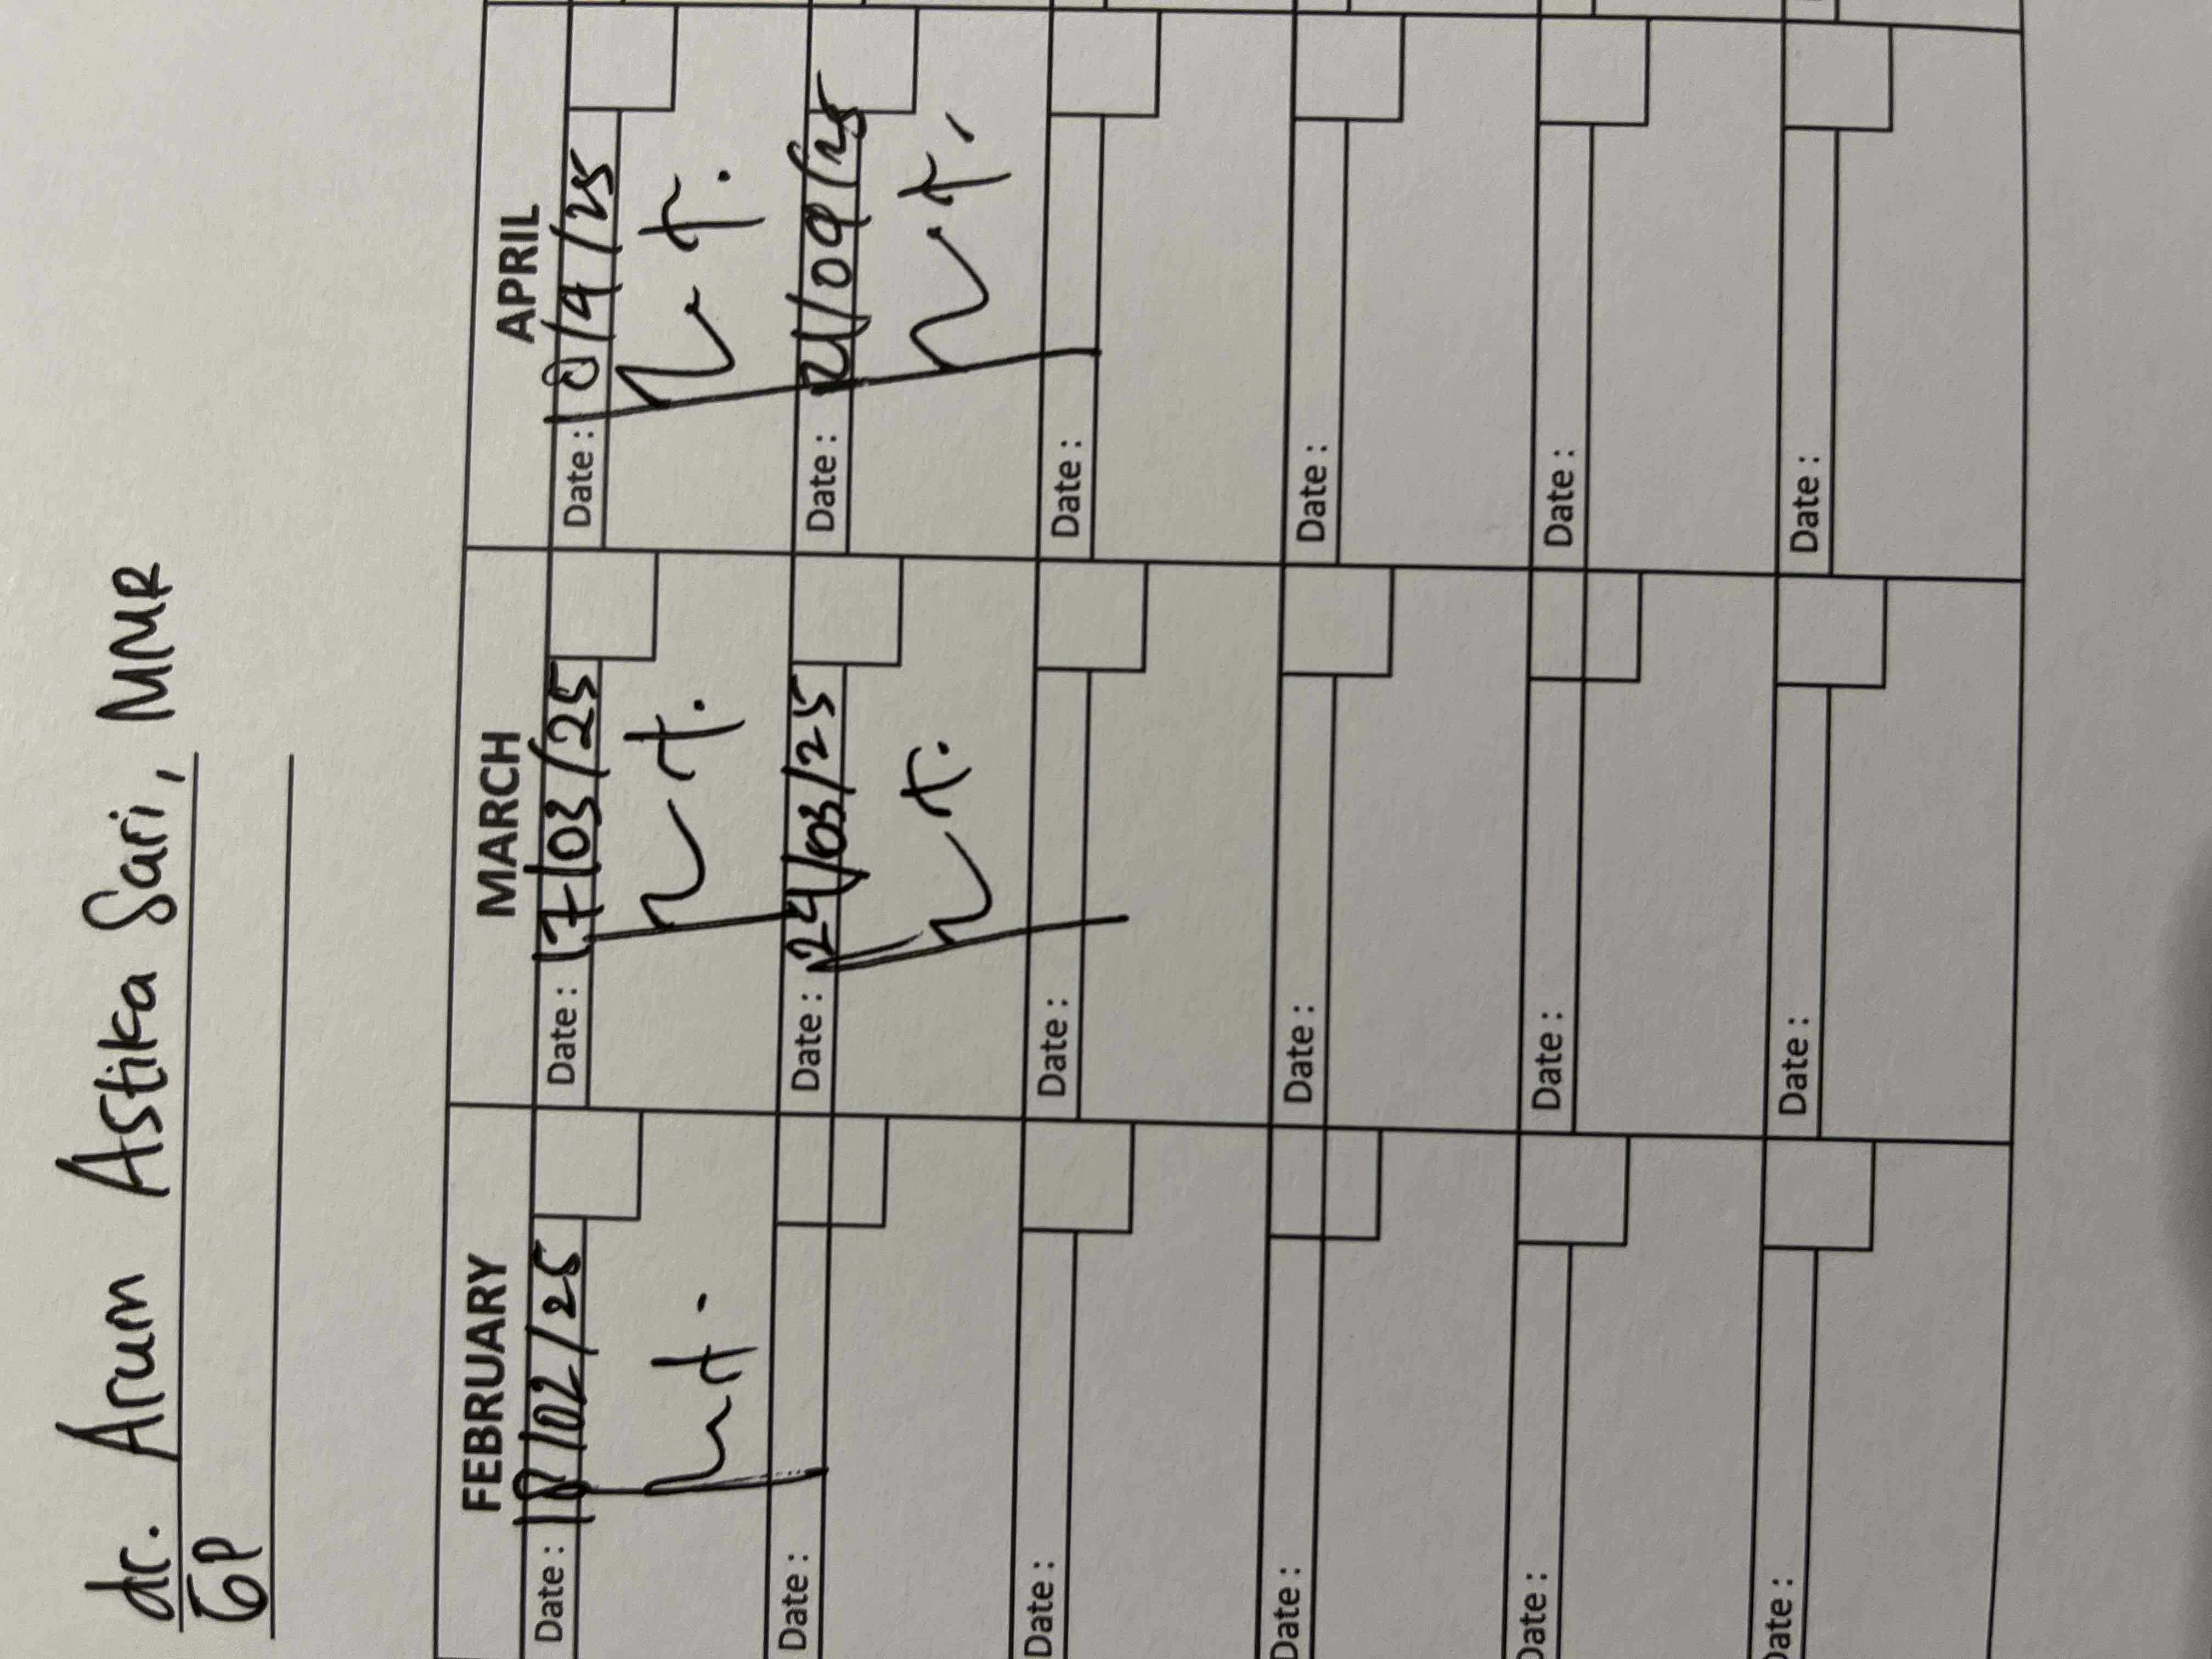 dr. Arum Astika Sari, MMR
GP
FEBRUARY MARCH APRIL
Date : /02/25 Date : 17/03/25 Date : /4/25
Date : Date : 24/03/25 Date : 21/04/25
Date : Date : Date :
Date : Date : Date :
Date : Date : Date :
Date : Date : Date :